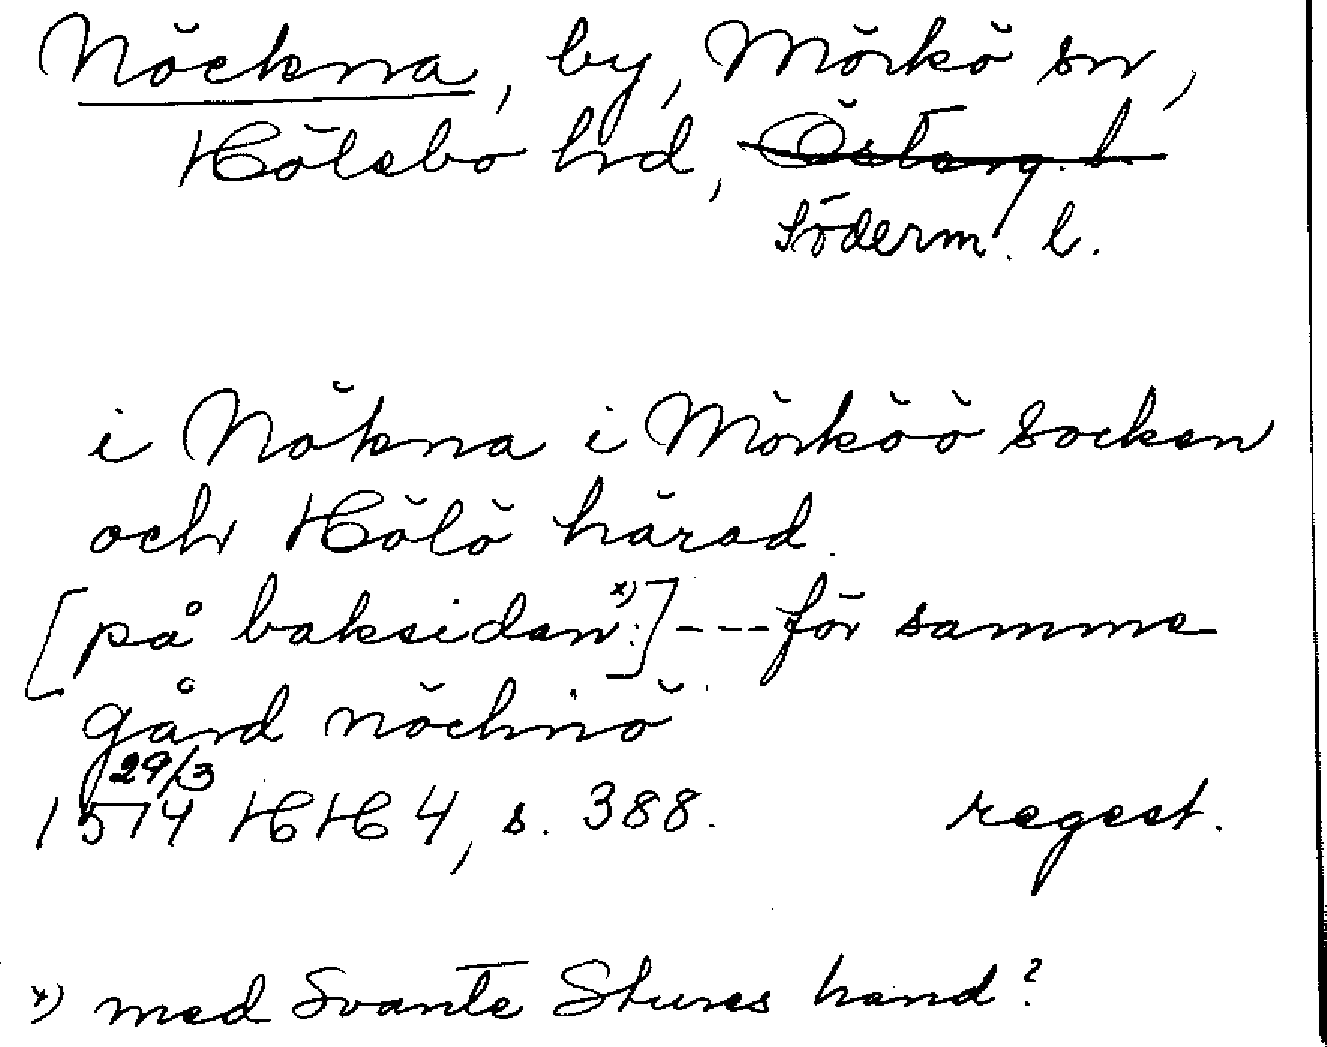 Nöckna, by, Mörkö sn,
Hölebo hrd, Österg. l.
Söderm. l.
i Nökna i Mörköö socken
och Hölö härad.
[på baksidan x):] --- för samme
gård nöchnö
29/3
1574 HH 4, s. 388. regest.
x) med Svante Stures hand?